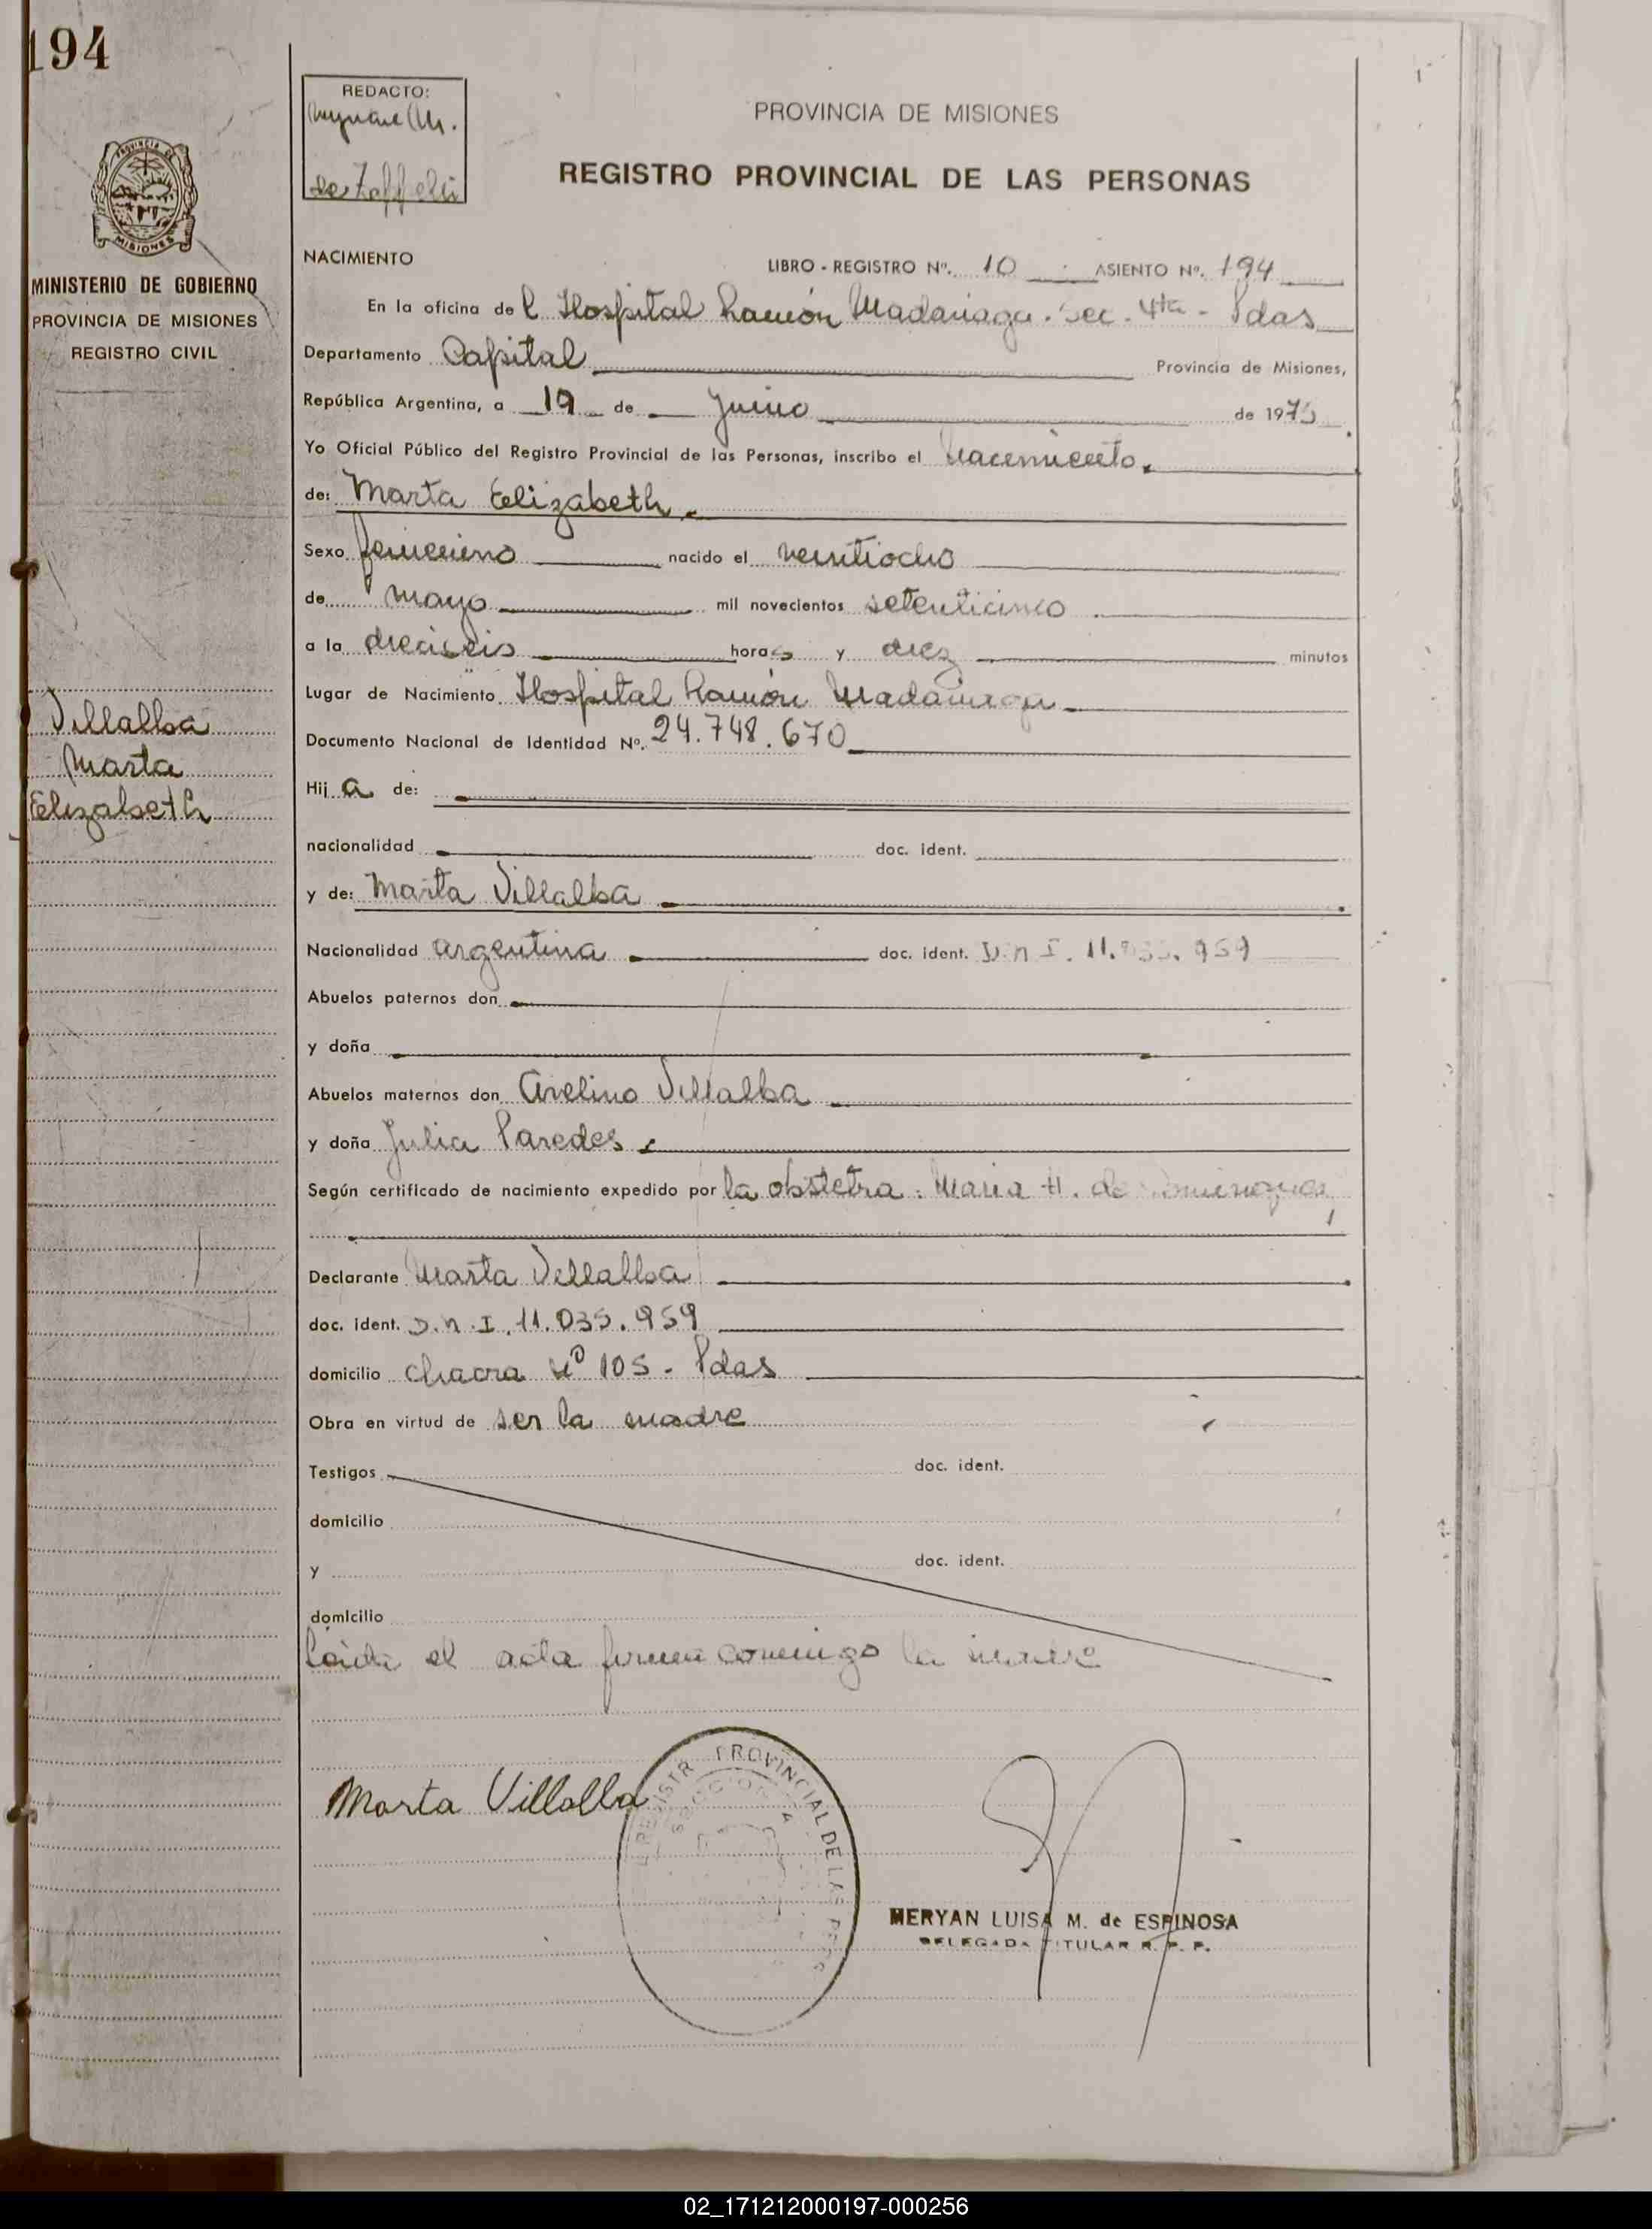 194
REDACTO:
de Zoffoli
PROVINCIA DE MISIONES
REGISTRO PROVINCIAL DE LAS PERSONAS
PROVINCIA DE
MISIONES
MINISTERIO DE GOBIERNO
PROVINCIA DE MISIONES
REGISTRO CIVIL
NACIMIENTO
LIBRO - REGISTRO Nº. 10 ASIENTO Nº. 194
En la oficina del Hospital Ramón Madariaga. Sec. 4ta - Pdas
Departamento Capital Provincia de Misiones,
República Argentina, a 19 de Junio de 1975
Yo Oficial Público del Registro Provincial de las Personas, inscribo el nacimiento.
de: Marta Elizabeth.
Sexo femenino nacido el veintiocho
de mayo mil novecientos setenticinco
a la dieciseis horas y diez minutos
Lugar de Nacimiento Hospital Ramón Madariaga
Documento Nacional de Identidad Nº. 24.748.670
Villalba
Marta
Elizabeth
Hija de:
nacionalidad doc. ident.
y de: Marta Villalba
Nacionalidad argentina doc. ident. D.N.I. 11.035.959
Abuelos paternos don
y doña
Abuelos maternos don Avelino Villalba
y doña Julia Paredes.
Según certificado de nacimiento expedido por la obstetra: Maria H. de
Declarante Marta Villalba
doc. ident. D.N.I. 11.035.959
domicilio chacra Nº 105 - Pdas
Obra en virtud de ser la madre
Testigos doc. ident.
domicilio
y doc. ident.
domicilio
Leida el acta firma conmigo la madre
Marta Villalba
PROVINCIAL DE LAS
MERYAN LUISA M. de ESPINOSA
DELEGADA TITULAR R. P. P.
02_171212000197-000256